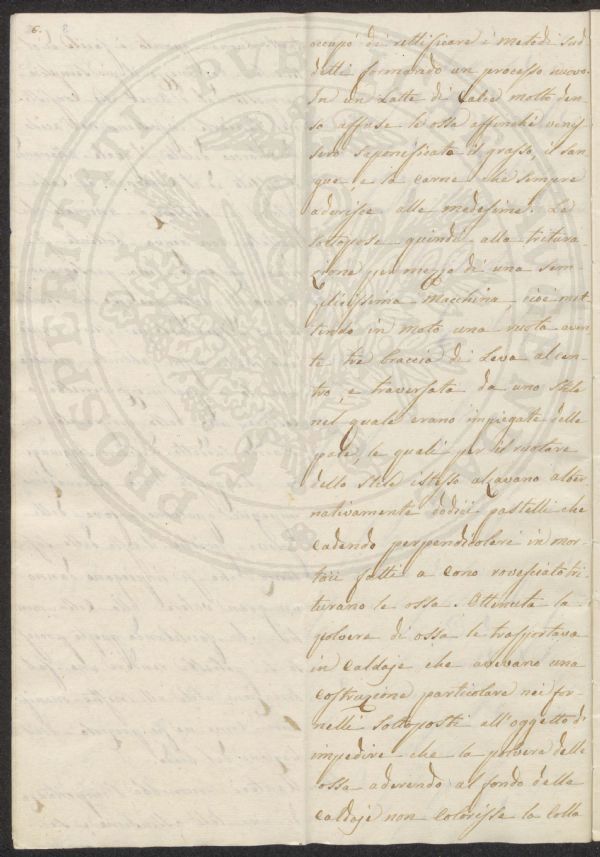 6.
occupò di rettificare i metodi sud
detti formando un processo nuovo.
In un Latte di Calce molto den
so affuse le ossa affinchè venis
sero saponificate il grasso, il san
gue, e la carne che sempre
aderisce alle medesime. Le
sottopose quindi alla tritura
zione per mezzo di una sem
plicissima Macchina, cioè met
tendo in moto una ruota aven
te tre braccia di Leva al cen
tro, e traversata da uno stile
nel quale erano impiegate delle
pale, le quali per il ruotare
dello stile istesso alzavano alter
nativamente dodici pastelli che
cadendo perpendicolari in mor
taii fatti a cono rovesciato tri
turano le ossa. Ottenuta la
polvere di ossa le trasportava
in Caldaje che avevano una
costruzione particolare nei for
nelli sottoposti all'oggetto di
impedire che la polvere delle
ossa aderendo al fondo delle
caldaje non colorisse la colla
PROSPERITATI PUBLICAE AUGENDAE